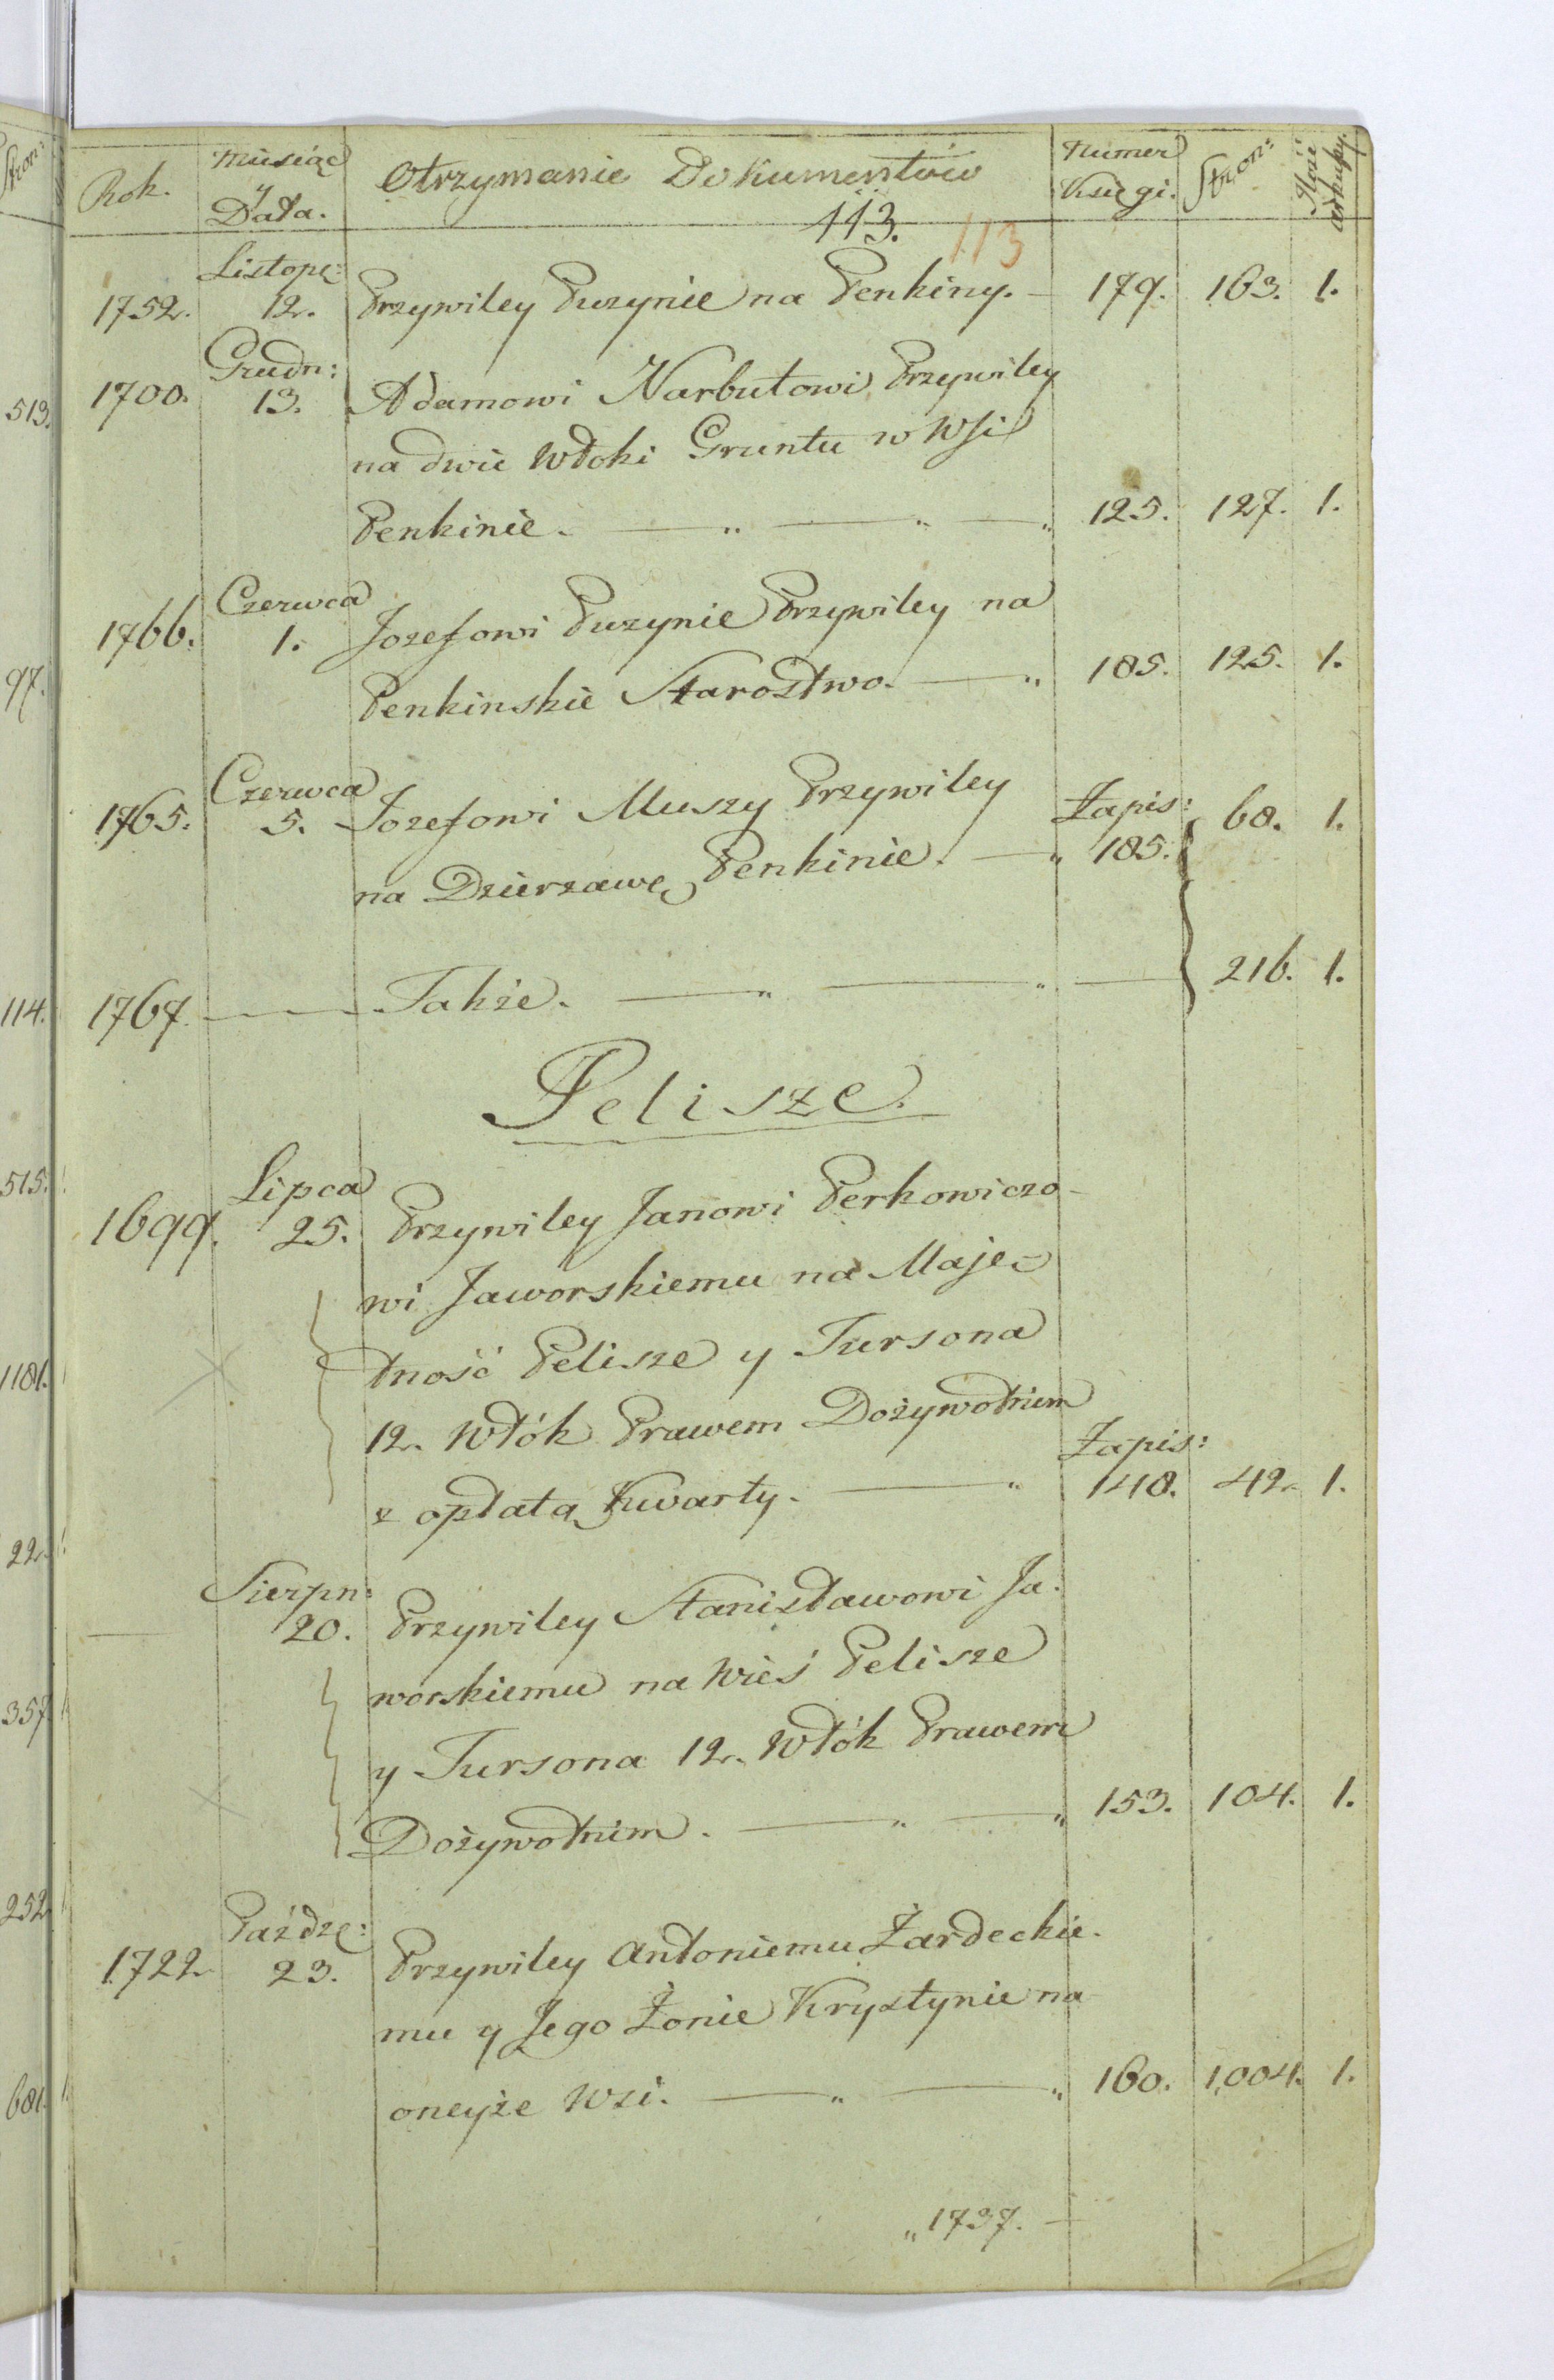 Stron:
513.
97.
114.
515.
1181.
22.
357
252
681.
Rok. Miesiąc y Data. Otrzymanie Dokumentów Numer Księgi. Stron: Ilość arkuszy.
113. 113
1752. Listopę: 12. Przywiley Puzynie na Penkiny. 179. 163. 1.
1700. Grudn: 13. Adamowi Narbutowi Przywiley
na dwie Włoki Gruntu w Wsi
Penkinie. 125. 127. 1.
1766. Czerwca 1. Jozefowi Puzynie Przywiley na
Penkinskie Starostwo. 185. 125. 1.
1765. Czerwca 5. Jozefowi Muszy Przywiley Zapis: 68. 1.
na Dzierzawę Penkinie. 185.
1767. Także. 216. 1.
Pelisze.
1699. Lipca 25. Przywiley Janowi Perkowiczo-
wi Jaworskiemu na Maję-
tność Pelisze y Tursona
12. Włók Prawem Dożywotniem
z opłatą Kwarty. Zapis: 148. 42. 1.
Sierpn: 20. Przywiley Stanisławowi Ja-
worskiemu na Wieś Pelisze
y Tursona 12. Włók Prawem
Dożywotnim. 153. 104. 1.
1722. Paźdze: 23. Przywiley Antoniemu Żardeckie-
mu y Jego Żonie Krystynie na
oneyże Wsi. 160. 1,004. 1.
„1737.